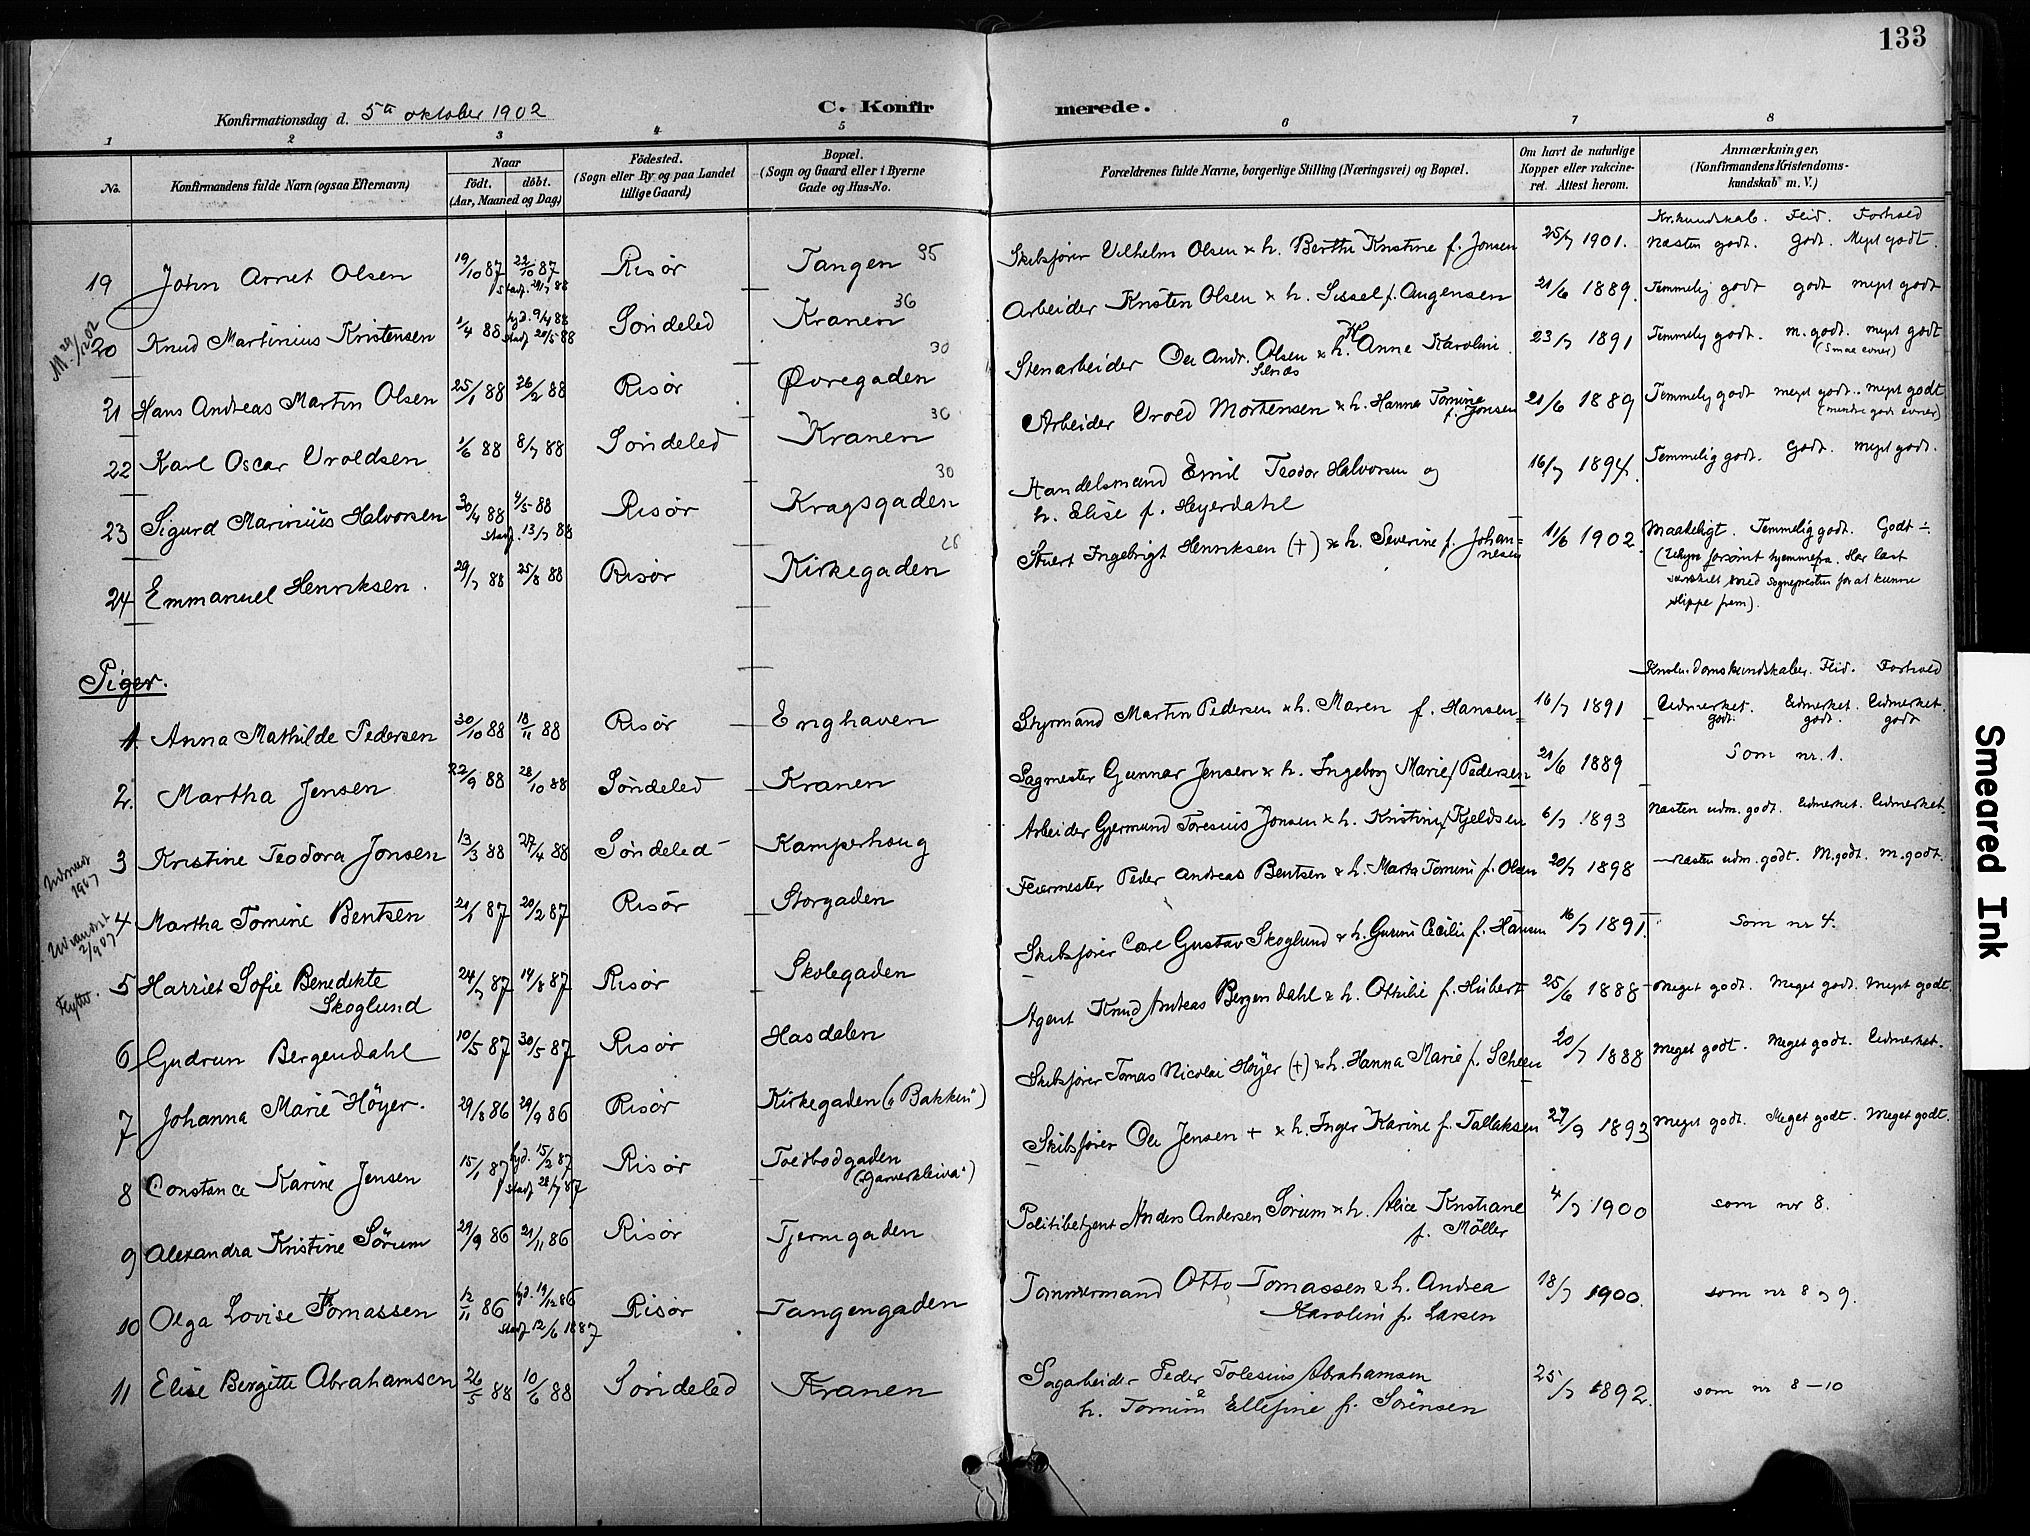 133
Konfirmationsdag d. 5te oktober 1902
C. Konfirmerede.
1 2 3 4 5 6 7 8
No.
Konfirmandens fulde Navn (ogsaa Efternavn)
Naar
födt. döbt.
(Aar, Maaned og Dag)
Födested.
(Sogn eller By og paa Landet
tillige Gaard)
Bopæl.
(Sogn og Gaard eller i Byerne
Gade og Hus-No.
Forældrenes fulde Navne, borgerlige Stilling (Næringsvei) og Bopæl.
Om havt de naturlige
Kopper eller vakcine-
ret. Attest herom.
Anmærkninger,
(Konfirmandens Kristendoms-
kundskab m. V.)
Kr.kundskab. Flid. Forhold
19 John Arnet Olsen 19/10 87 22/10 87 Risør Tangen 35 Skibsfører Vilhelm Olsen & h. Berthe Kristine f. Jensen 25/7 1901. Næsten godt. godt. Meget godt.
20 Knud Martinius Kristensen 1/4 88 hjd. 9/4 88 Søndeled Kranen 36 Arbeider Kristen Olsen & h. Sissel f. Augensen 21/6 1889. Temmelig godt godt meget godt
stadf. 20/5 88
21 Hans Andreas Martin Olsen 25/1 88 26/2 88 Risør Øvregaden 30 Stenarbeider Ole Andr. Olsen & h. Anne Karoline 23/7 1891 Temmelig godt. m. godt. meget godt
(smaa evner)
22 Karl Oscar Uroldsen 1/6 88 8/7 88 Søndeled Kranen 30 Arbeider Urold Mortensen & h. Hanna Tomine f. Jensen 21/6 1889 Temmelig godt meget godt. meget godt
(mindre gode evner)
23 Sigurd Marinius Halvorsen 30/4 88 9/5 88 Risør Kragsgaden 30 Handelsmand Emil Teodor Halvorsen og 16/7 1894. Temmelig godt. Godt. meget godt.
stadf. 13/7 88 h. Elise f. Heyerdahl
24 Emmanuel Henriksen. 29/7 88 25/8 88 Risør Kirkegaden 28 Stuert Ingebrigt Henriksen (+) & h. Severine f. Johannesen 11/6 1902. Maadeligt. Temmelig godt. Godt ÷
forsømt hjemmefra. Har læst
særskilt med sognepresten for at kunne
slippe frem).
Piger.
Flid. Forhold
1. Anna Mathilde Pedersen 30/10 88 18/11 88 Risør Enghaven Styrmand Martin Pedersen & h. Maren f. Hansen 16/7 1891 Udmerket godt. Udmerket godt. Udmerket godt
2. Martha Jensen 22/9 88 28/10 88 Søndeled Kranen Sagmester Gunnar Jensen & h. Ingeborg Marie f. Pedersen 21/6 1889 Som nr. 1.
3 Kristine Teodora Jonsen 13/3 88 27/4 88 Søndeled Kamperhoug Arbeider Gjermund Toresius Jonsen & h. Kristine f. Kjeldsen 6/7 1893 Næsten udm. godt. Udmerket. Udmerket.
4 Martha Tomine Bentsen 21/1 87 20/2 87 Risør Storgaden Feiermester Peder Andreas Bentsen & h. Marta Tomine f. Olsen 20/7 1898 Næsten udm. godt. M. godt. m. godt.
Udvandret
2/9 07
5 Harriet Sofie Benedikte 24/7 87 14/8 87 Risør Skolegaden Skibsfører Carl Gustav Skoglund & h. Gurine Cecilie f. Hansen 16/7 1891. Som nr 4.
Skoglund
Flyttet.
6 Gudrun Bergendahl 10/5 87 30/5 87 Risør Hasdalen Agent Knud Andreas Bergendahl & h. Ottilie f. Hubert 25/6 1888 Meget godt. Meget godt. Meget godt.
7 Johanna Marie Höyer. 29/8 86 29/9 86 Risør Kirkegaden ("Bakken") Skibsfører Tomas Nicolai Höyer (+) & h. Hanna Marie f. Scheen 20/7 1888 Meget godt. Meget godt. Udmerket.
8 Constance Karine Jensen 15/1 87 hjd. 15/2 87 Risør Toldbodgaden Skibsfører Ole Jensen + & h. Inger Karine f. Tallaksen 27/9 1893 Meget godt. Meget godt. Meget godt.
stadf 28/7 87 ("Garverkleiva")
9 Alexandra Kristine Sørum 29/9 86 21/11 86 Risør Tjerngaden Politibetjent Anders Andersen Sørum & h. Alice Kristiane 4/7 1900 som nr 8.
f. Möller
10 Olga Lovise Tomassen 12/11 86 hjd. 19/12 86 Risør Tangengaden Tømmermand Otto Tomassen & h. Andrea 18/7 1900. som nr 8 og 9.
stadf 12/6 1887 Karoline f. Larsen
11 Elise Bergitte Abrahamsen 26/5 88 10/6 88 Søndeled Kranen Sagarbeider Peder Tolesius Abrahamsen 25/7 1892. som nr 8-10
h. Tomine Ellefine f. Sørensen
Smeared Ink